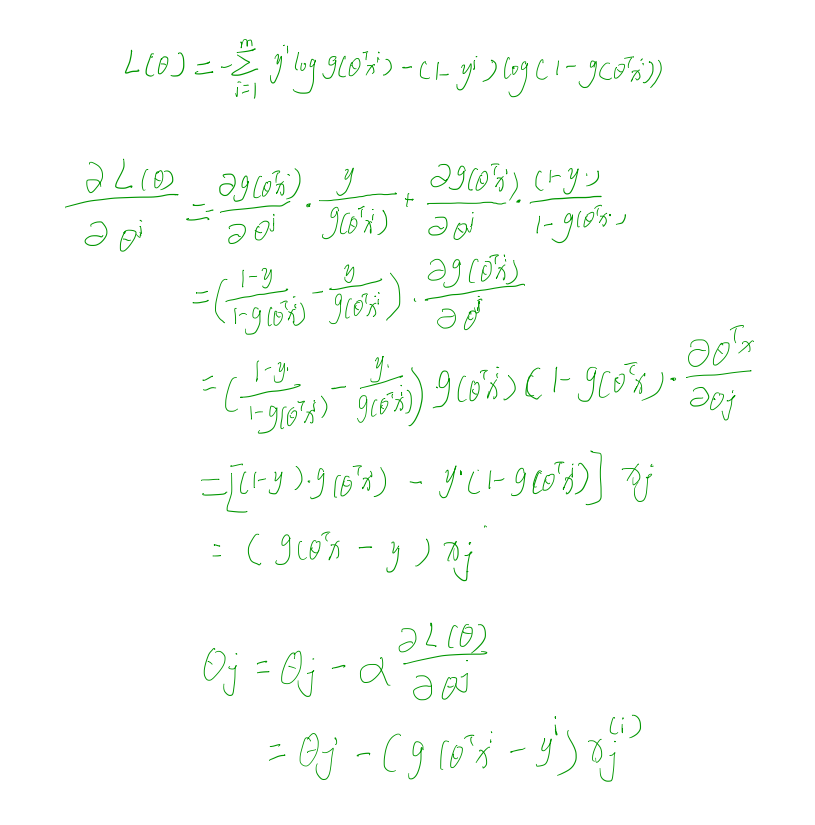 L(θ) = -∑_{i=1}^{m} y^i log g(θ^T x^i) - (1 - y^i) log (1 - g(θ^T x^i))
∂L(θ)/∂θ^j = ∂g(θ^T x^i)/∂θ^j · y/g(θ^T x^i) + ∂g(θ^T x^i)/∂θ^j · (1-y^.)/1-g(θ^T x^.)
= (1-y/1-g(θ^T x^i) - y/g(θ^T x^i)) · ∂g(θ^T x^i)/∂θ^j
= (1-y^./1-g(θ^T x^i) - y^./g(θ^T x^i)) · g(θ^T x^i) (1 - g(θ^T x) · ∂θ^T x/∂θj
= [(1-y) · g(θ^T x^i) - y^. (1 - g(θ^T x^i)] xj
= (g(θ^T x - y) xj
θj = θj - α ∂L(θ)/∂θ^j
= θj - (g(θ^T x^i - y^i) xj^(i)